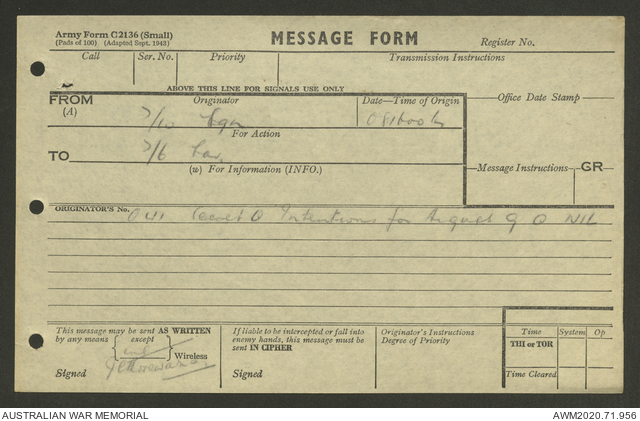 Army Form C2136 (Small)
(Pads of 100) (Adapted Sept. 1943)
MESSAGE FORM
Register No.
Call Ser. No. Priority Transmission Instructions
ABOVE THIS LINE FOR SIGNALS USE ONLY
FROM Originator Date—Time of Origin Office Date Stamp
(A) 7/10 081600
For Action
TO 7/6
(w) For Information (INFO.) Message Instructions GR
ORIGINATOR'S No. Secret O Intentions for August 9 O NIL
This message may be sent AS WRITTEN
by any means except
Wireless
Signed
If liable to be intercepted or fall into
enemy hands, this message must be
sent IN CIPHER
Signed
Originator's Instructions
Degree of Priority
Time System Op
THI or TOR
Time Cleared
AUSTRALIAN WAR MEMORIAL AWM2020.71.956